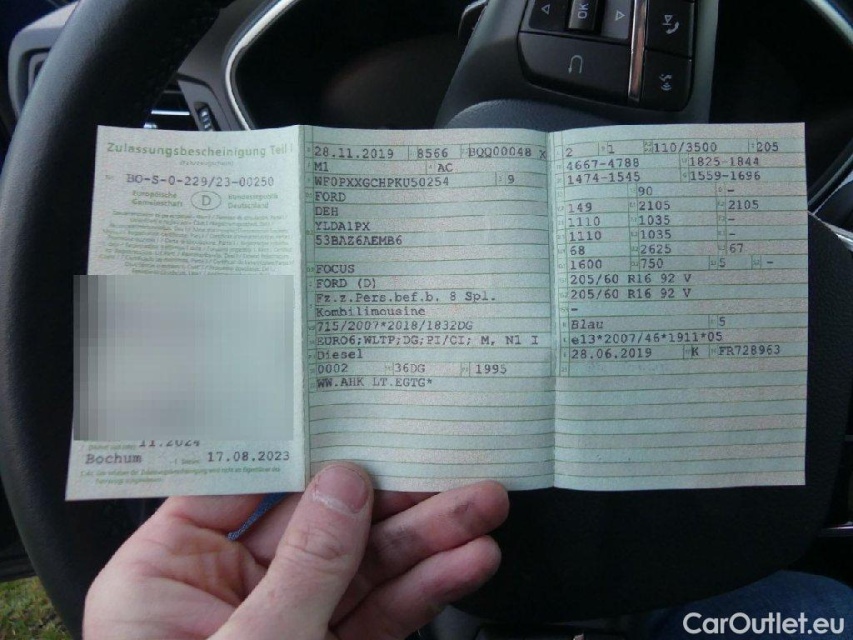 OK
Zulassungsbescheinigung Teil I
BO-S-0-229/23-00250
Europäische Gemeinschaft
D
Bundesrepublik Deutschland
11.2024
Bochum
17.08.2023
28.11.2019 8566 BQQ00048 X
M1 AC
WF0PXXGCHPKU50254 9
FORD
DEH
YLDA1PX
53BAZ6AEMB6
FOCUS
FORD (D)
Fz.z.Pers.bef.b. 8 Spl.
Kombilimousine
715/2007*2018/1832DG
EURO6;WLTP;DG;PI/CI; M, N1 I
Diesel
0002 36DG 1995
WW.AHK LT.EGTG*
2 1 110/3500 205
4667-4788 1825-1844
1474-1545 1559-1696
90 -
149 2105 2105
1110 1035 -
1110 1035 -
68 2625 67
1600 750 5 -
205/60 R16 92 V
205/60 R16 92 V
-
Blau 5
e13*2007/46*1911*05
28.06.2019 K FR728963
CarOutlet.eu